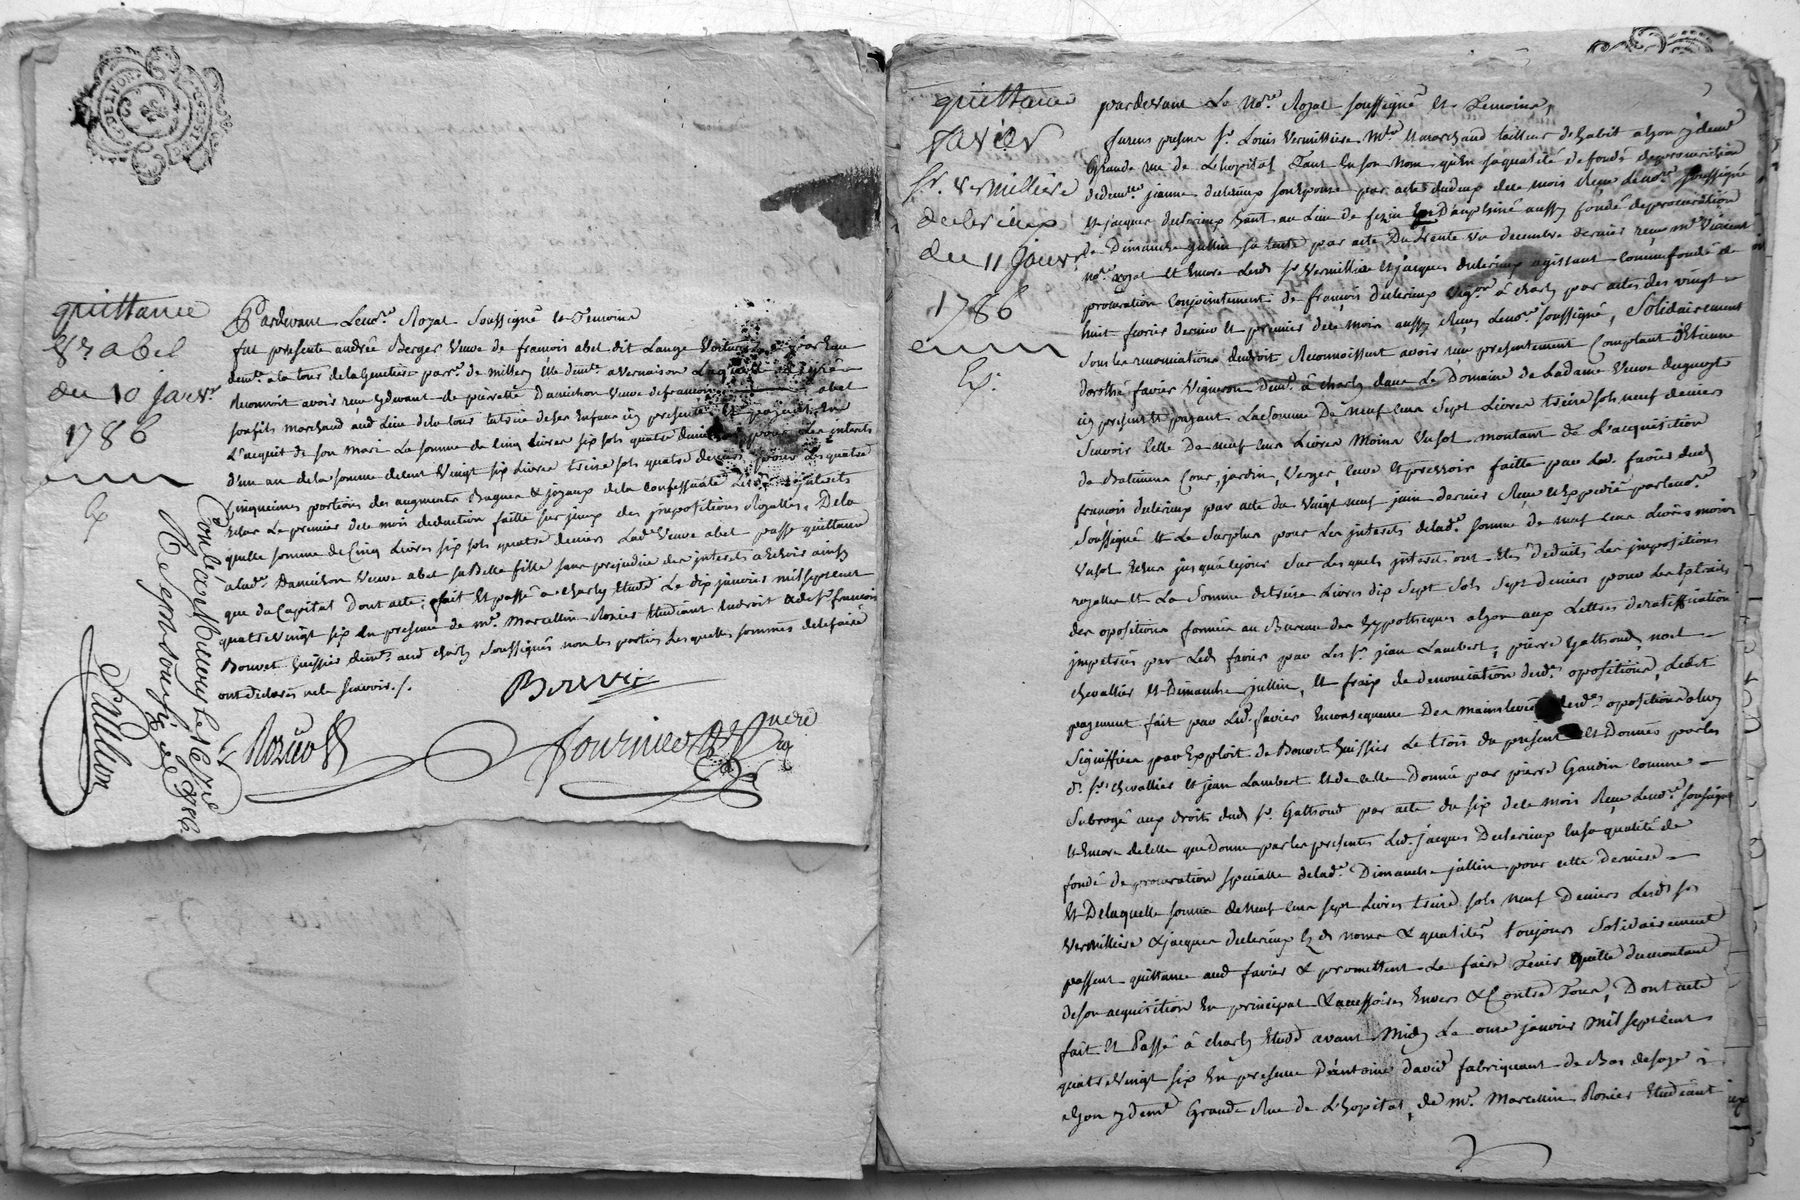 quittance
Vᵉ abel
du 10 janvr
1786
Pardevant Le nore. Royal Soussigné et Temoins
fut presente andrée Berger Veuve de françois abel dit Lange Voiturier par Eau
demte. a la tour de la parr. de millery Elle demte. a Vernaison Laquelle
Reconnoit avoir reçu cydevant de pierrette Damichon Veuve de françois abel
son fils marchand aud Lieu de la tour tutrice de ses Enfans icy presente Et payante En
L'acquit de son mari La somme de Cinq Livres six sols quatre deniers pour Les interets
d'un an de la somme de Cent Vingt six Livres treize sols quatre deniers pour Les quatre
Cinquiemes portions des augments Bagues & joyaux de la Confessante Lesd. interets
Echus Le premier de ce mois deduction faitte sur iceux des impositions Royalles. De la
quelle somme de Cinq Livres six sols quatre deniers Lade. Veuve abel passe quittance
a lade. Damichon Veuve abel sa Belle fille sans prejudice des interets a Echoir ainsy
que du Capital Dont acte: fait Et passé a Charly Etude Le dix janvier mil sept cent
quatre Vingt six En presence de mr. Marcellin Rozier Etudiant En droit & de sr. françois
Bouvet huissier demt. aud Charly Soussignés non les parties Lesquelles sommées de le faire
ont declarés ne le sçavoir./.
Bouvet
Rozier
Controlé a St Le 16 janv 1786
Reçu dix sols six deniers
quittance
favier
sr. Vermilliere
du 11 janvr
1786
Ex.
pardevant Le Nore. Royal soussigné et Temoins,
furent presens sr. Louis Vermilliere Mtre. Marchand tailleur d'habit a Lyon y demt.
Grande rue de L'hopital Tant En son Nom qu'En sa qualité de fondé de procuration
de demlle. jeanne son Epouse par acte du deux de ce mois Reçu Le nore. soussigné
Et jacques habt. au Lieu de En Dauphiné aussy fondé de procuration
de Dimanche jullin sa tante par acte Du trente un decembre dernier reçu me. Vincent
nore. royal et Encore Lesd. sr. Vermilliere Et jacques agissant comme fondé de
procuration Conjointement de françois Vigon. à Charly par actes des vingt
huit fevrier dernier Et premier de ce mois aussy Reçus Lenore. soussigné, Solidairement
sous les renonciations de droit Reconnoissent avoir reçu presentement Comptant d'Etienne
dorothé favier Vigneron demt. à Charly dans Le Domaine de Ladame Veuve
icy present Et payant La somme De neuf cent sept Livres treize sols neuf deniers
Sçavoir Celle De neuf cent Livres Moins Un sol montant de L'acquisition
de Batimens Cour, jardin, Verger, Cuve Et pressoir faitte par Led. favier dud.
françois par acte du Vingt neuf juin dernier Reçu Et Expedié par Lenore.
Soussigné Et Le Surplus pour Les interets de lade. somme de neuf cent Livres moins
Un sol Echus jusqu'à ce jour Sur Lesquels interets ont Eté Deduits Les impositions
royalles Et La Somme de treize Livres dix sept sols sept deniers pour Les Extraits
des opositions formées au Bureau des hypotheques a Lyon aux Lettres de ratiffication
impetrées par Led. favier par Les sr. jean Lambert, pierre Gattoud, noel
Chevallier Et Dimanche jullin, Et fraix de denonciation desde. opositions, Ledit
payement fait par Led. favier En consequence Des mainlevées desde. opositions a luy
Signiffiées par Exploit de Bouvet huissier Le trois du present Et Données par les
d. sr. Chevallier Et jean Lambert Et de Celle Donnée par pierre Gaudin Comme
Subrogé aux droits dud. sr. Gattoud par acte du six de ce mois Reçu Lenore. soussigné
Et Encore de Celle que Donne par les presentes Led. jacques En sa qualité de
fondé De procuration spécialle de lade. Dimanche jullin pour cette derniere
Et De laquelle somme de Neuf cent sept Livres treize sols neuf Deniers Lesd srs
Vermilliere & jacques Es d. noms & qualités toujours Solidairement
passent quittance aud favier & promettent Le faire Tenir quitte du montant
de son acquisition En principal & accessoires Envers & Contre Tous, Dont acte
fait Et Passé à Charly Etude avant Midy Le onze janvier Mil sept cent
quatre Vingt six En presence D'antoine david fabriquant de Bas de soye à
Lyon y demt. Grande Rue de L'hopital, de mr. Marcellin Rozier Etudiant